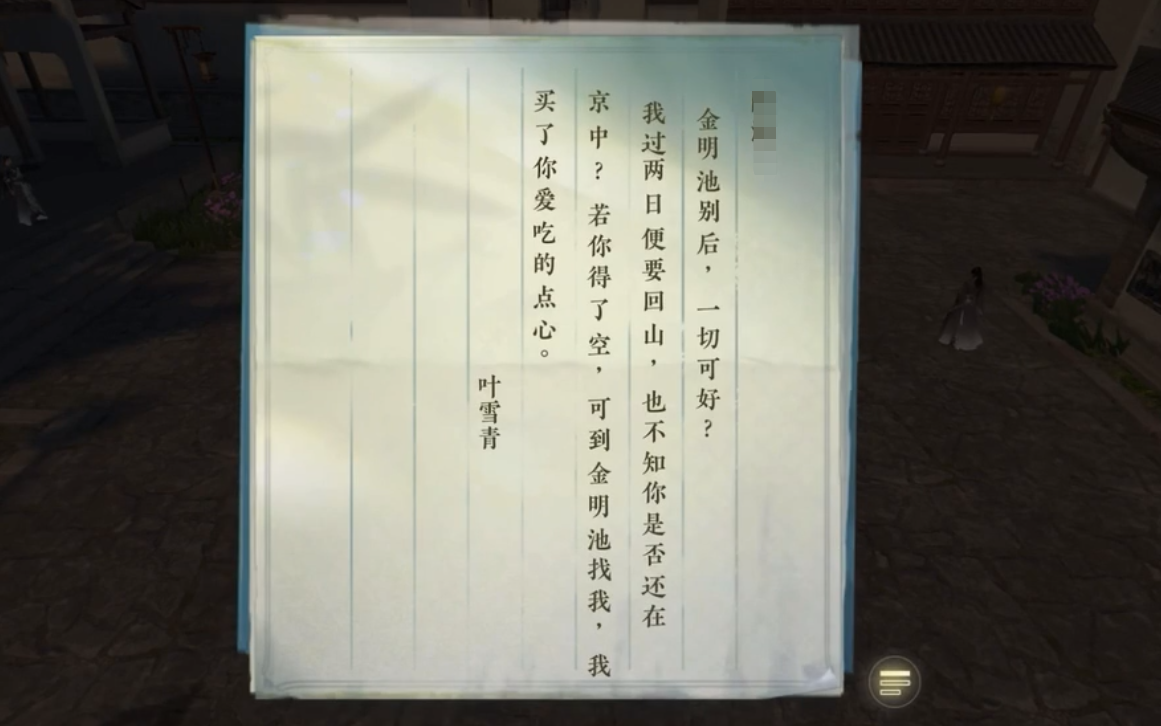 金明池别后，一切可好？
我过两日便要回山，也不知你是否还在
京中？若你得了空，可到金明池找我，我
买了你爱吃的点心。
叶雪青